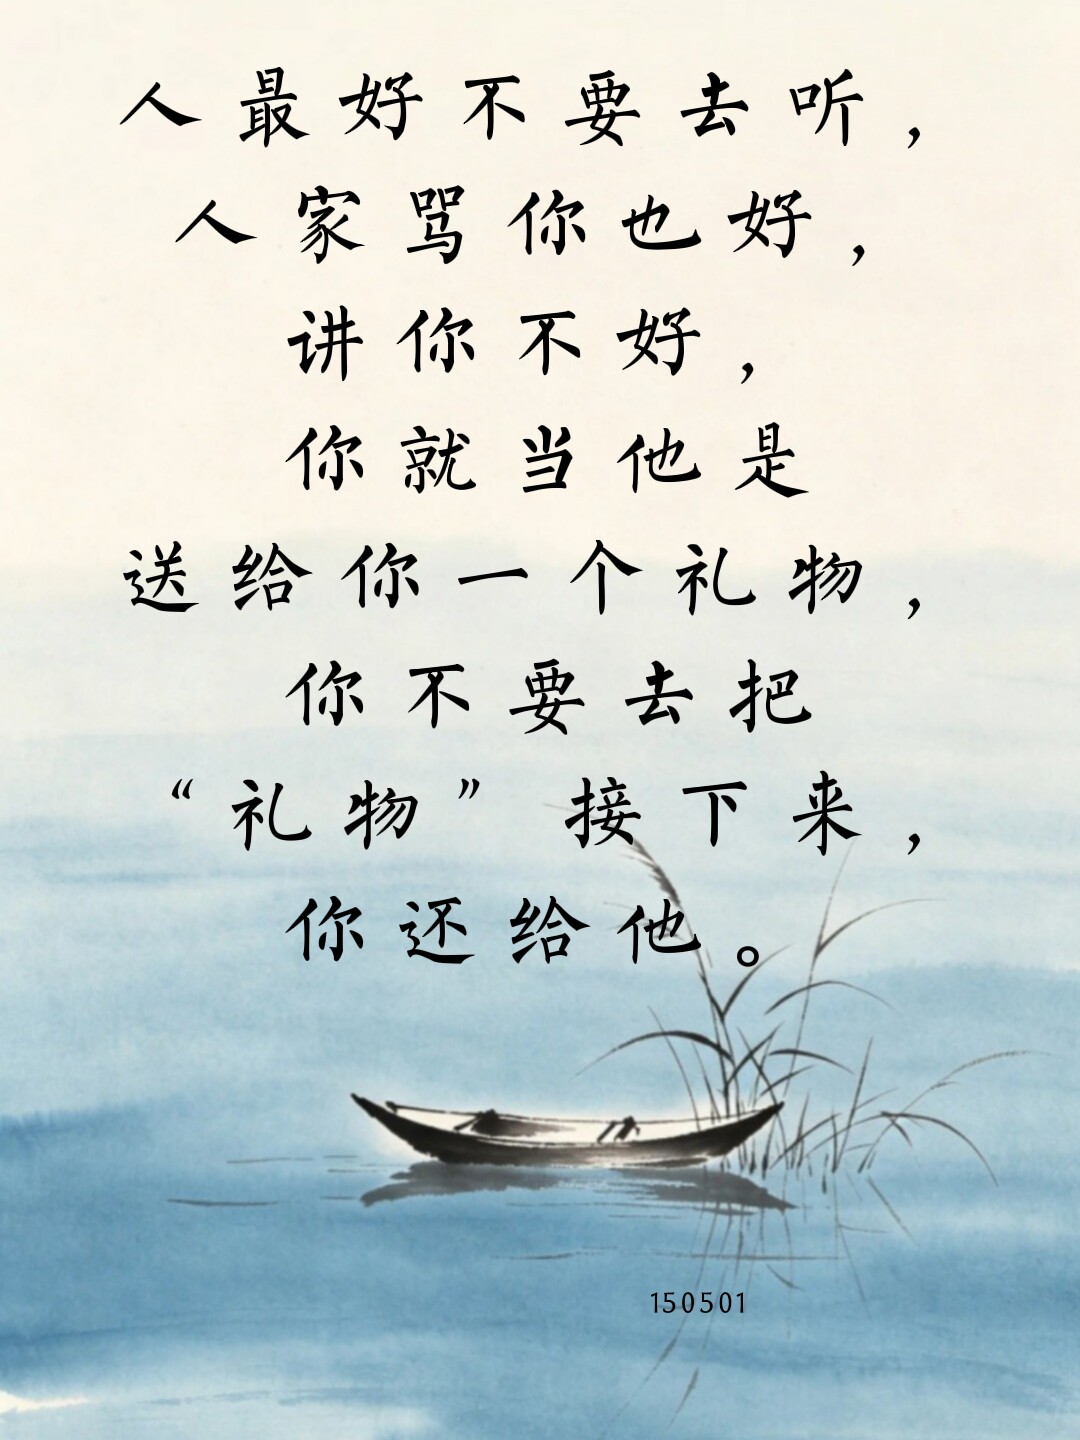 人最好不要去听，
人家骂你也好，
讲你不好，
你就当他是
送给你一个礼物，
你不要去把
“礼物”接下来，
你还给他。
150501